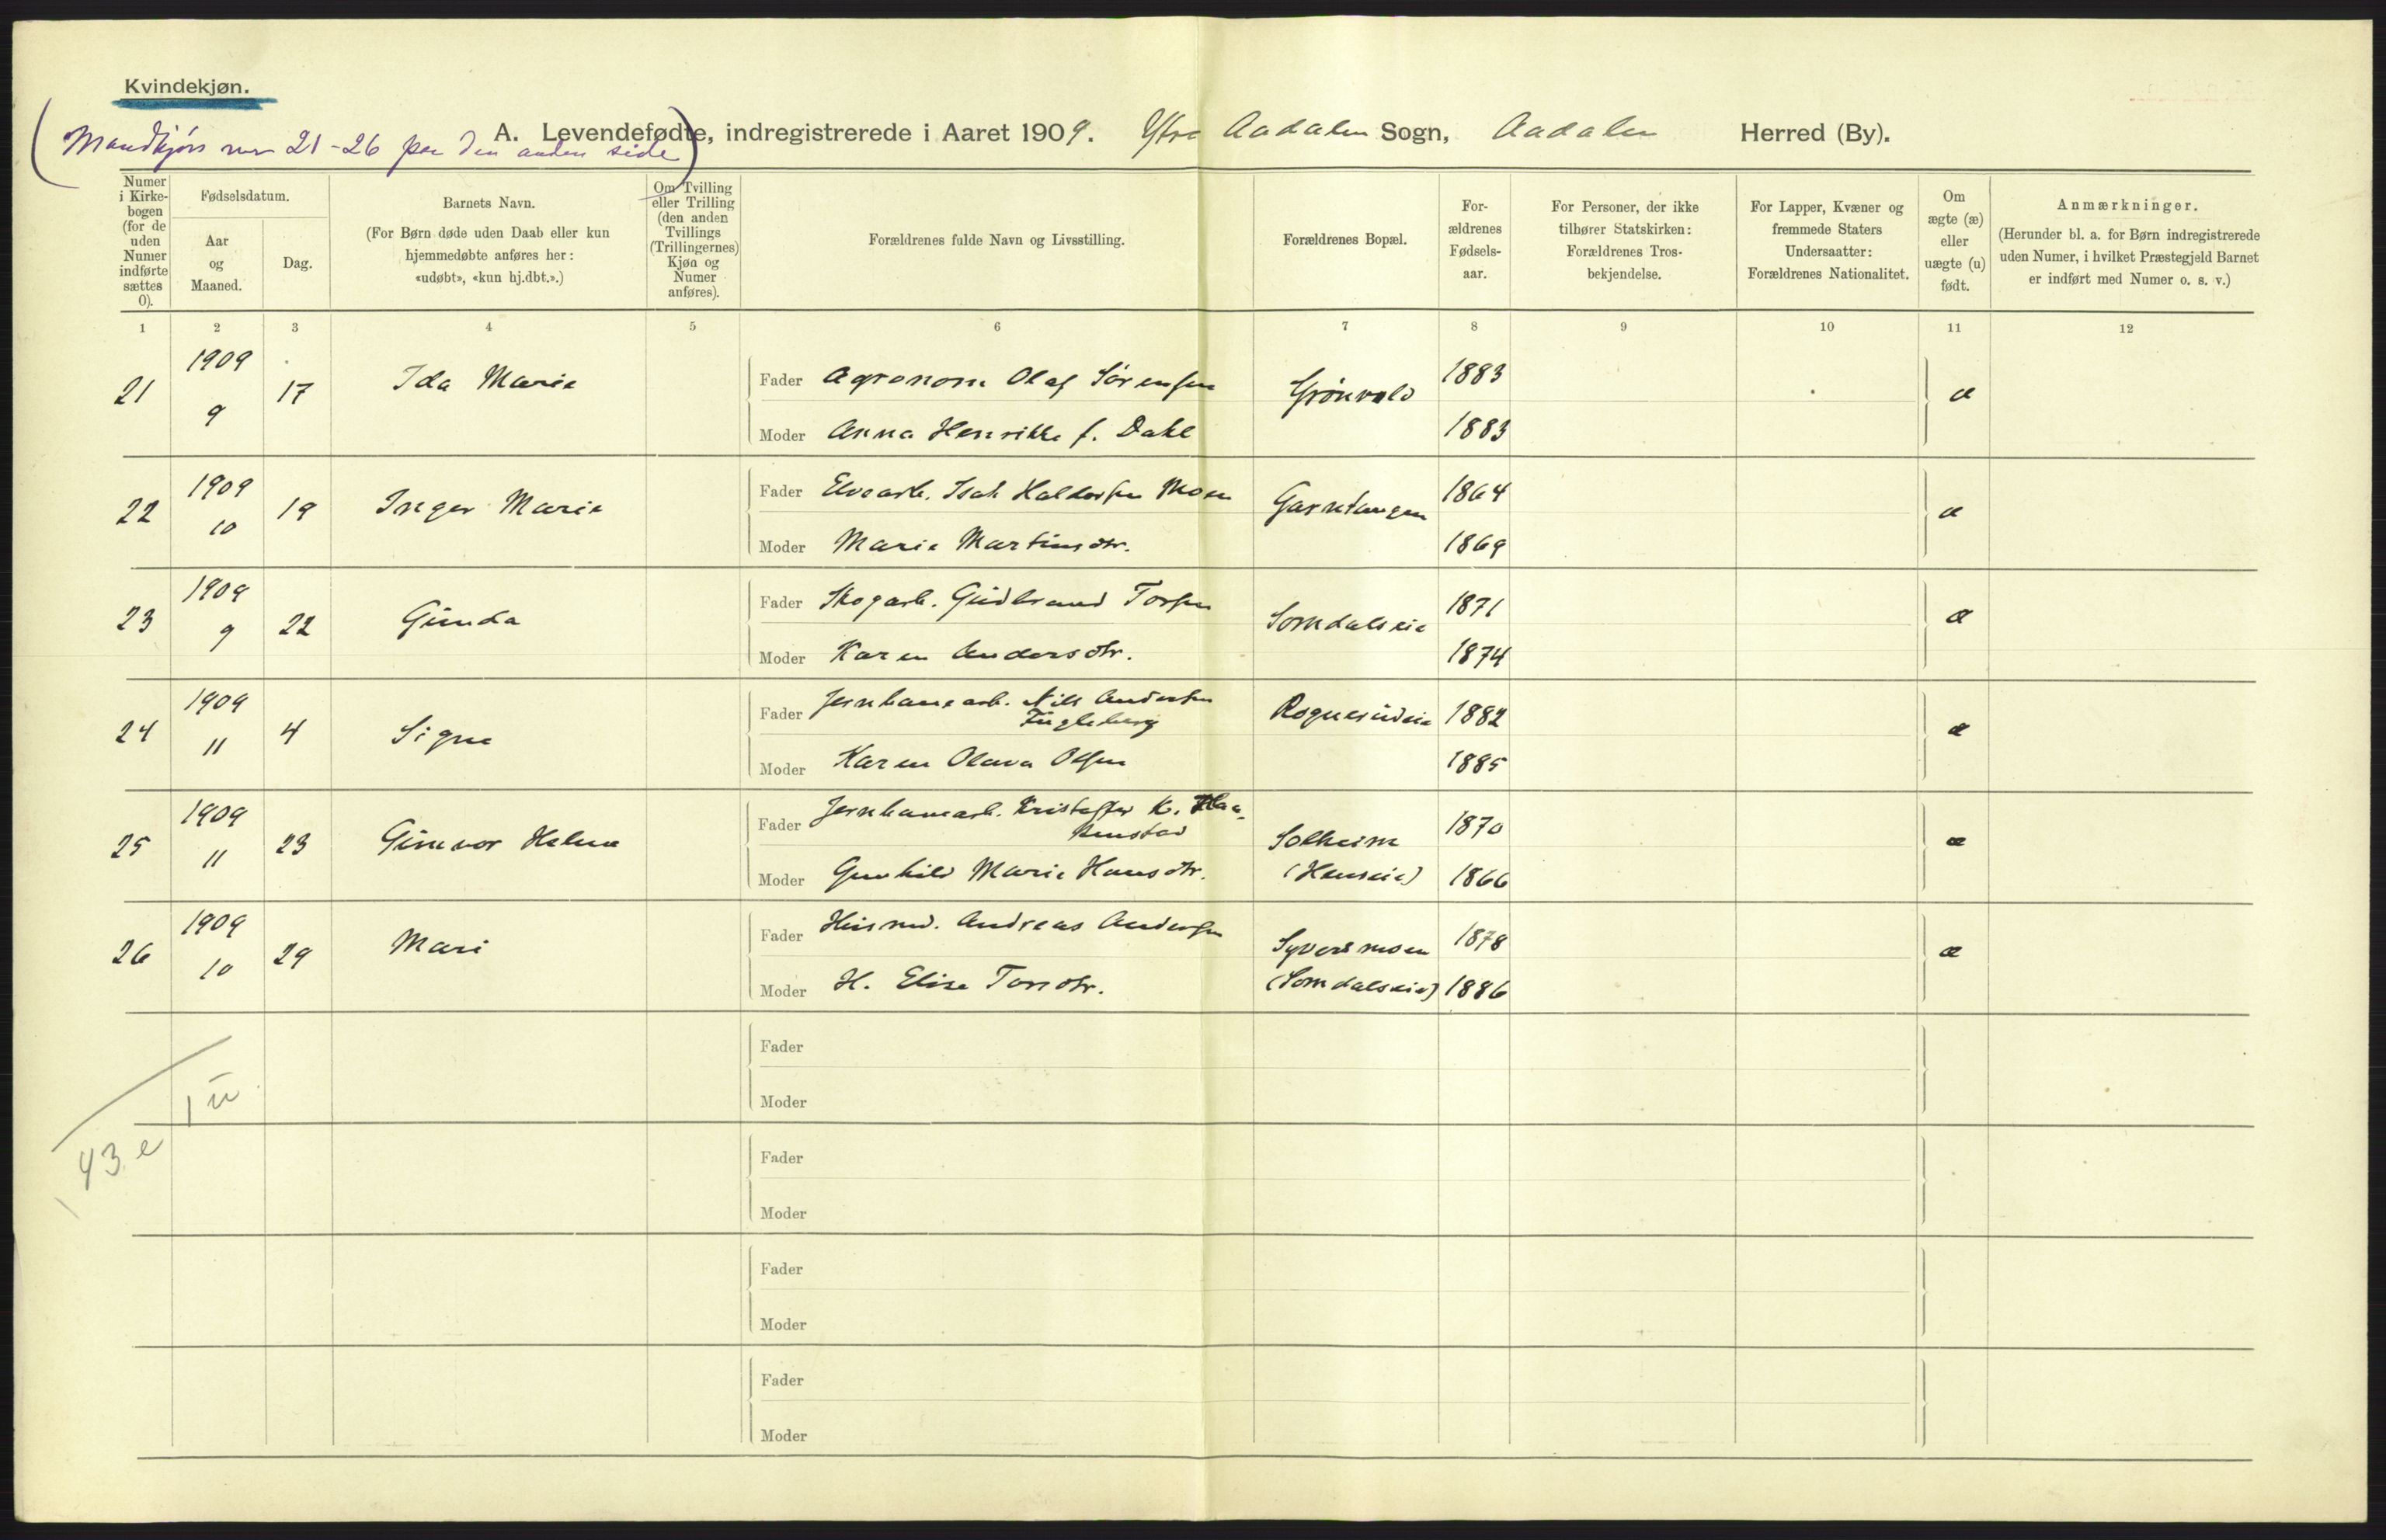 Kvindekjøn.
(Mandkjøn nr 21-26 paa den anden side)
A. Levendefødte, indregistrerede i Aaret 1909. Ytre Aadalen Sogn, Aadalen Herred (By).
Numer i Kirkebogen (for de uden Numer indførte sættes 0).
Fødselsdatum.
Aar og Maaned.
Dag.
Barnets Navn.
(For Børn døde uden Daab eller kun hjemmedøbte anføres her: «udøbt», «kun hj.dbt.».)
Om Tvilling eller Trilling (den anden Tvillings (Trillingernes) Kjøn og Numer anføres).
Forældrenes fulde Navn og Livsstilling.
Forældrenes Bopæl.
For-ældrenes Fødsels-aar.
For Personer, der ikke tilhører Statskirken: Forældrenes Tros-bekjendelse.
For Lapper, Kvæner og fremmede Staters Undersaatter: Forældrenes Nationalitet.
Om ægte (æ) eller uægte (u) født.
Anmærkninger.
(Herunder bl. a. for Børn indregistrerede uden Numer, i hvilket Præstegjeld Barnet er indført med Numer o. s. v.)
1 2 3 4 5 6 7 8 9 10 11 12
21 1909 9 17 Ida Marie Fader Agronom Olaf Sörensen Grönvold 1883 æ
Moder Anna Henrikke f. Dahl 1883
22 1909 10 19 Inger Marie Fader Elvearb. Isak Haldorsen Moen Garntangen 1864 æ
Moder Marie Martinsdtr. 1869
23 1909 9 22 Gunda Fader Skogarb. Gudbrand Torsen Somdalseie 1871 æ
Moder Karen Andersdtr. 1874
24 1909 11 4 Signe Fader Jernbanearb. Nils Andersen Fugleberg 1882 æ
Moder Karen Olava Olsen 1885
25 1909 11 23 Gunvor Helene Fader Jernbanearb. Kristoffer K. Solheim 1870 æ
Moder Gunhild Marie Hansdtr. (Henseie) 1866
26 1909 10 29 Mari Fader Husmd. Andreas Andersen Syversmoen 1878 æ
Moder H. Elise Torsdtr. (Somdalseie) 1886
Fader
1 u
Moder
43 e
Fader
Moder
Fader
Moder
Fader
Moder